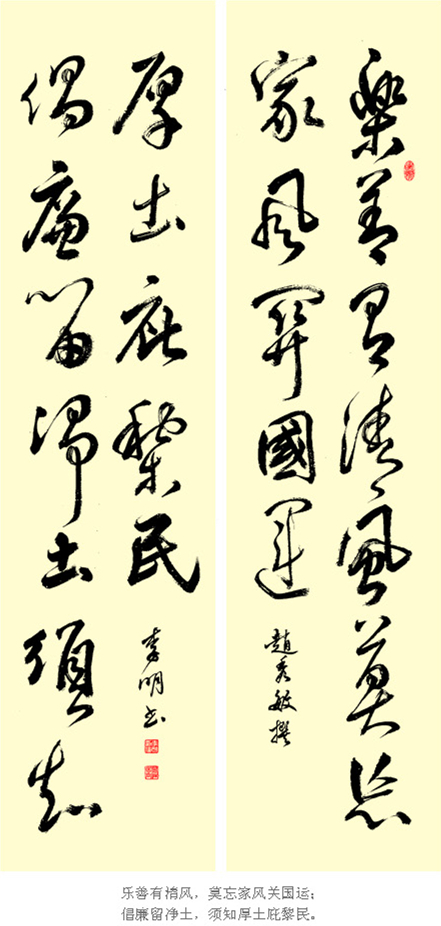 樂善有清風莫忘
家風關國運
趙秀敏撰
倡廉留淨土須知
厚土庇黎民
李明書
乐善有清风，莫忘家风关国运；
倡廉留净土，须知厚土庇黎民。